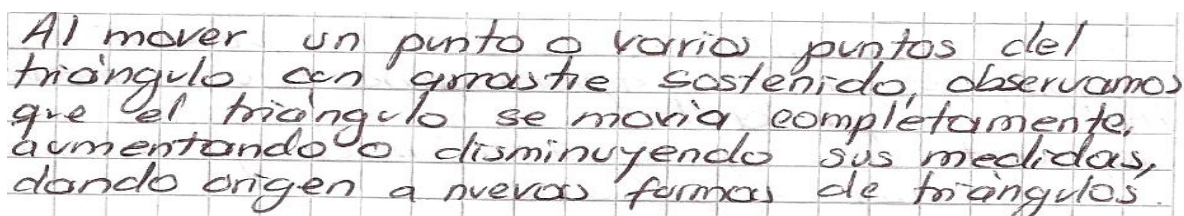 Al mover un punto o varios puntos del
triángulo con arrastre sostenido, observamos
que el triángulo se movía completamente,
aumentando o disminuyendo sus medidas,
dando origen a nuevas formas de triángulos.